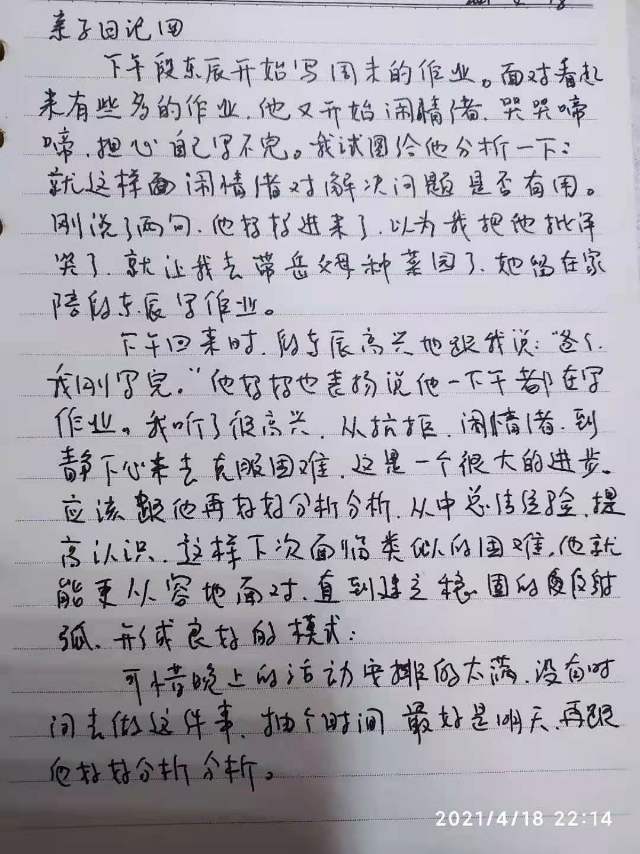 亲子日记四
下午段东辰开始写周末的作业。面对看起
来有些多的作业,他又开始闹情绪,哭哭啼
啼,担心自己写不完。我试图给他分析一下:
就这样面闹情绪对解决问题是否有用。
刚说了两句,他妈妈进来了,以为我把他批评
哭了,就让我去带岳父母种菜园了,她留在家
陪段东辰写作业。
下午回来时,段东辰高兴地跟我说:“爸爸,
我刚写完。”他妈妈也表扬说他一下午都在写
作业。我听了很高兴,从抗拒、闹情绪,到
静下心来去克服困难,这是一个很大的进步。
应该跟他再好好分析分析,从中总结经验,提
高认识,这样下次面临类似的困难,他就
能更从容地面对,直到建立稳固的反射
弧,形成良好的模式;
可惜晚上的活动安排的太满,没有时
间去做这件事,抽个时间 最好是明天,再跟
他好好分析分析。
2021/4/18 22:14